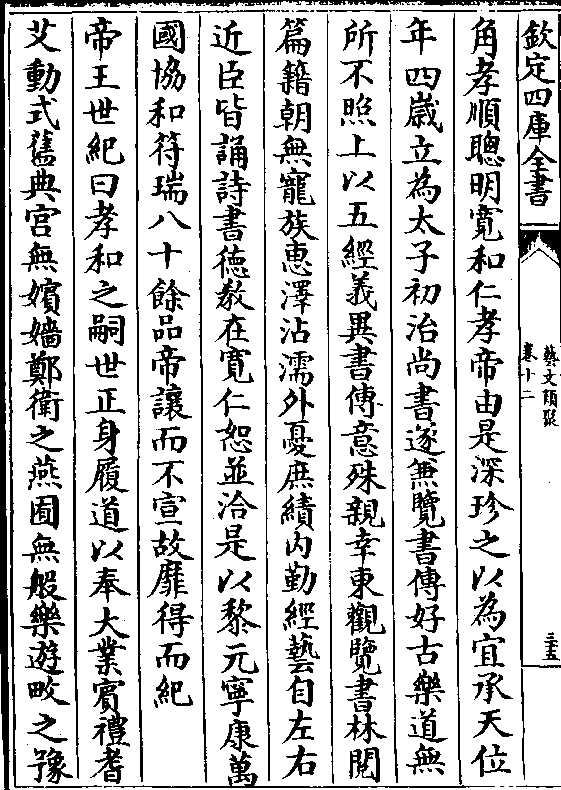 欽定四庫全書
藝文類聚
卷十二
三五
角孝順聰明寬和仁孝帝由是深珍之以為宜承天位
年四歲立為太子初治尚書遂兼覽書傳好古樂道無
所不照上以五經義異書傳意殊親幸東觀覽書林閱
篇籍朝無寵族惠澤沾濡外憂庶績內勤經藝自左右
近臣皆誦詩書德教在寬仁恕並洽是以黎元寧康萬
國協和符瑞八十餘品帝讓而不宣故靡得而紀
帝王世紀曰孝和之嗣世正身履道以奉大業賓禮耆
艾動式舊典宫無嬪嬙鄭衛之燕囿無般樂遊畋之豫